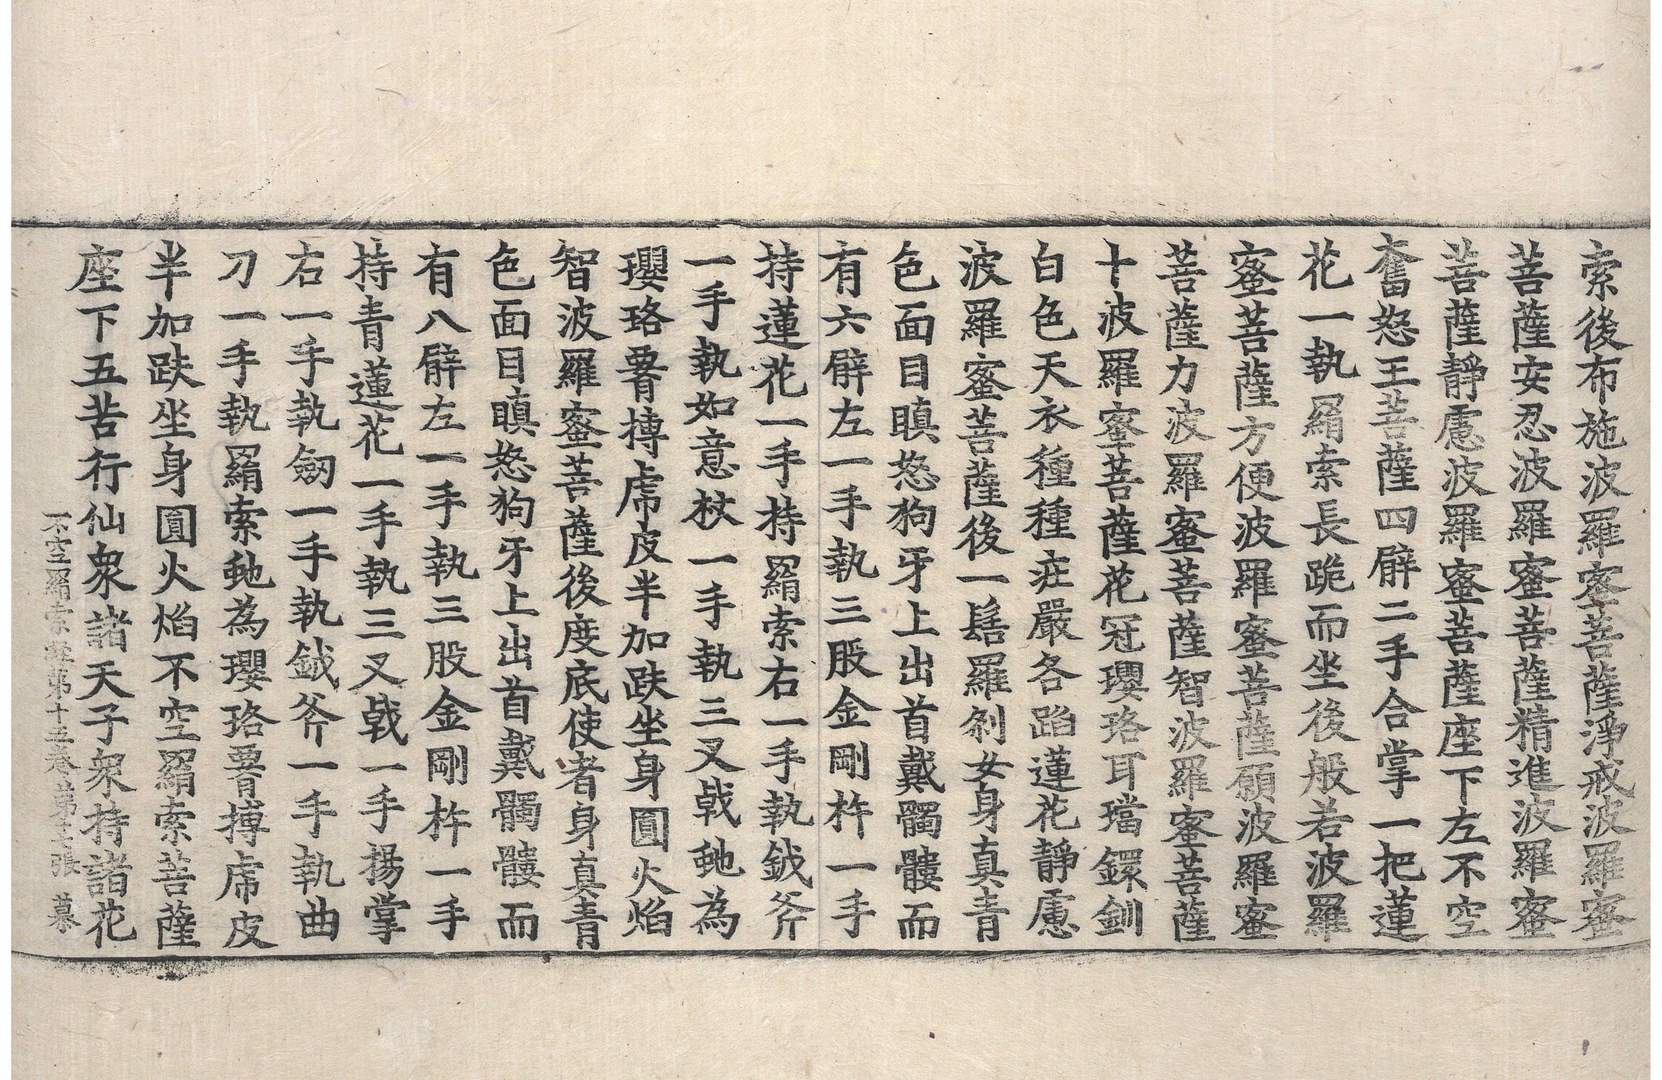 索後布施波羅蜜菩薩淨戒波羅蜜
菩薩安忍波羅蜜菩薩精進波羅蜜
菩薩靜慮波羅蜜菩薩座下左不空
奮怒王菩薩四臂二手合掌一把蓮
花一執羂索長跪而坐後般若波羅
蜜菩薩方便波羅蜜菩薩願波羅蜜
菩薩力波羅蜜菩薩智波羅蜜菩薩
十波羅蜜菩薩花冠瓔珞耳璫鐶釧
白色天衣種種莊嚴各蹈蓮花靜慮
波羅蜜菩薩後一髻羅剎女身真青
色面目瞋怒狗牙上出首戴髑髏而
有六臂左一手執三股金剛杵一手
持蓮花一手持羂索右一手執鉞斧
一手執如意杖一手執三叉戟虵為
瓔珞𦝫膊虎皮半加趺坐身圓火焰
智波羅蜜菩薩後度底使者身真青
色面目瞋怒狗牙上出首戴髑髏而
有八臂左一手執三股金剛杵一手
持青蓮花一手執三叉戟一手揚掌
右一手執劒一手執鉞斧一手執曲
刀一手執羂索虵為瓔珞𦝫膊虎皮
半加趺坐身圓火焰不空羂索菩薩
座下五苦行仙衆諸天子衆持諸花
不空羂索經第十五卷 第 張 慕